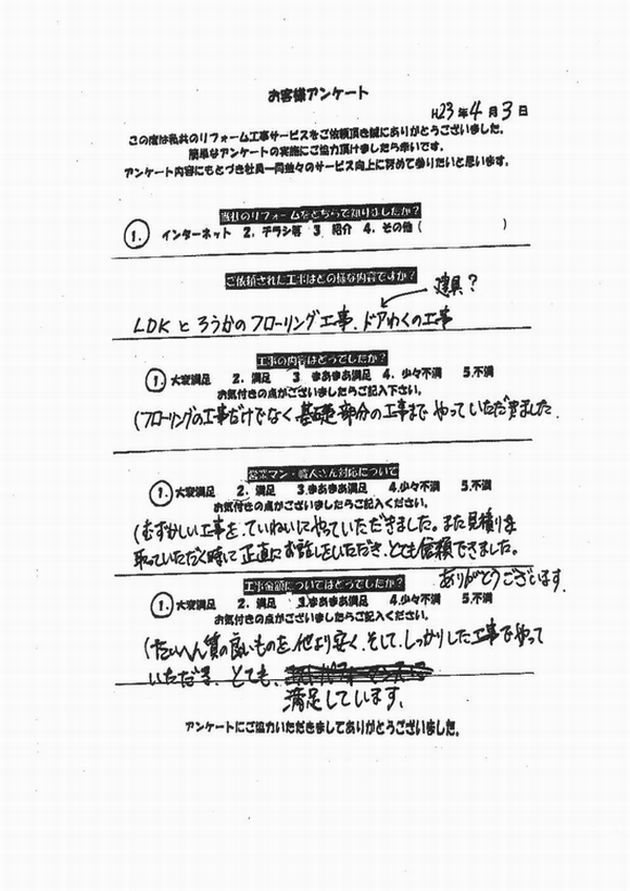 お客様アンケート
H23年4月3日
この度は私共のリフォーム工事サービスをご依頼頂き誠にありがとうございました。
簡単なアンケートの実施にご協力頂けましたら幸いです。
アンケート内容にもとづき社員一同益々のサービス向上に努めて参りたいと思います。
当社のリフォームをどちらで知りましたか？
1. インターネット 2. チラシ等 3 紹介 4. その他（ ）
ご依頼された工事はどの様な内容ですか？
建具？
LDKとろうかのフローリング工事、ドアわくの工事
工事の内容はどうでしたか？
1. 大変満足 2. 満足 3 まあまあ満足 4. 少々不満 5.不満
お気付きの点がございましたらご記入下さい。
(フローリングの工事だけでなく基礎部分の工事までやっていただきました.
営業マン・職人さん対応について
1. 大変満足 2. 満足 3.まあまあ満足 4.少々不満 5.不満
お気付きの点がございましたらご記入ください。
(むずかしい工事を、ていねいにやっていただきました。また見積りを
取っていただく時にて正直にお話しをいただき、とても信頼できました。
ありがとうございます.
工事金額についてはどうでしたか？
1. 大変満足 2. 満足 3.まあまあ満足 4.少々不満 5.不満
お気付きの点がございましたらご記入ください。
(たいへん質の良いものを、他より安く、そして、しっかりした工事でやって
いただき、とても、
満足しています.
アンケートにご協力いただきましてありがとうございました。